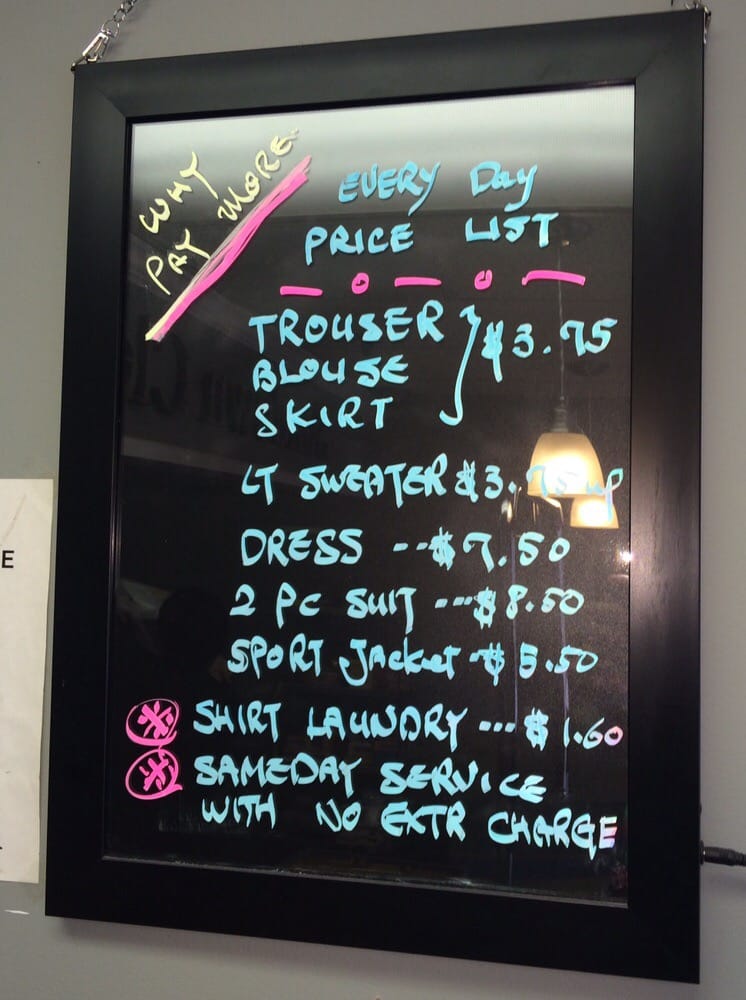 WHY
PAY MORE.
EVERY Day
PRICE LIST
TROUSER
BLOUSE
SKIRT
} $3.75
LT SWEATER $3.75 up
DRESS --$7.50
2 PC SUIT ---$8.50
SPORT Jacket -$5.50
SHIRT LAUNDRY ---$1.60
SAMEDAY SERVICE
WITH NO EXTR CHARGE
E